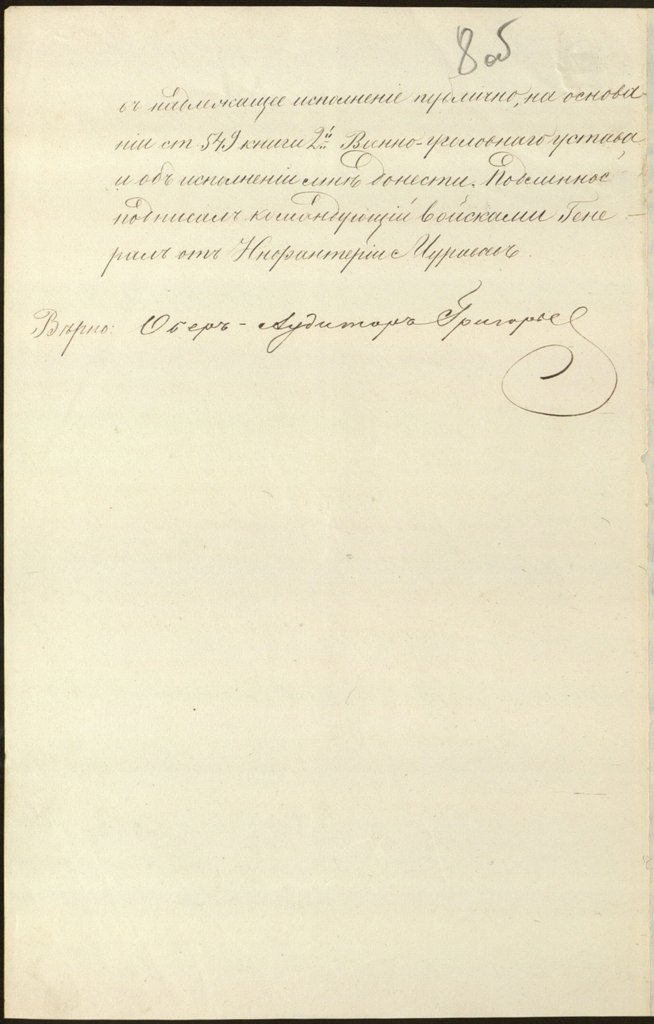 8 об
въ надлежащее исполненіе публично, на основа-
ніи ст 549 книги 2й Военно-уголовнаго устава,
и объ исполненіи мнѣ донести. Подлинное
подписалъ командующій войсками Гене-
ралъ отъ Инфантеріи Муравьевъ.
Вѣрно: Оберъ-Аудиторъ Григорьев